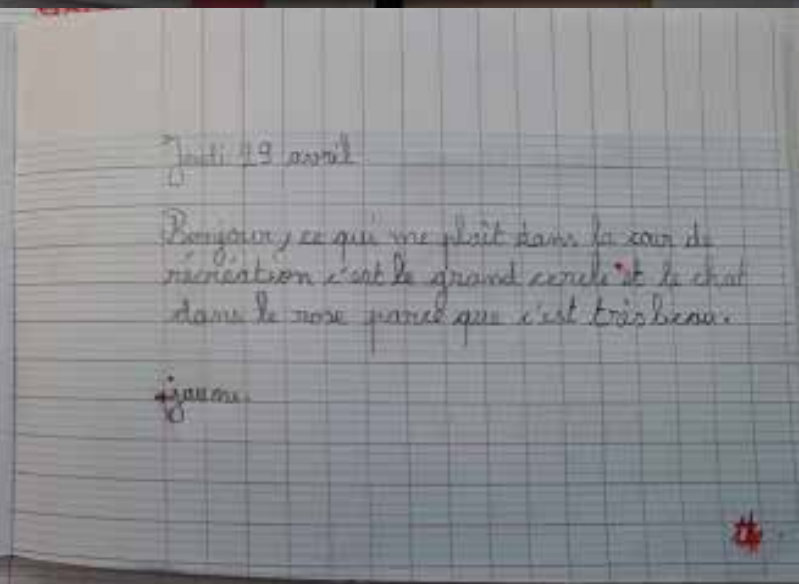 Jeudi 19 avril
Bonjour, ce qui me plaît dans la cour de
récréation c'est le grand cercle et le chat
dans le rose parce que c'est très beau.
jaume.